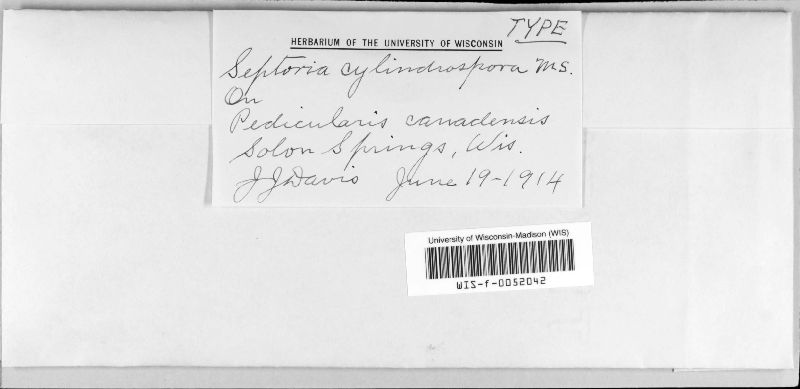 TYPE
HERBARIUM OF THE UNIVERSITY OF WISCONSIN
Septoria cylindrospora MS.
On
Pedicularis canadensis
Solon Springs, Wis.
J J Davis June 19-1914
University of Wisconsin-Madison (WIS)
WIS-f-0052042